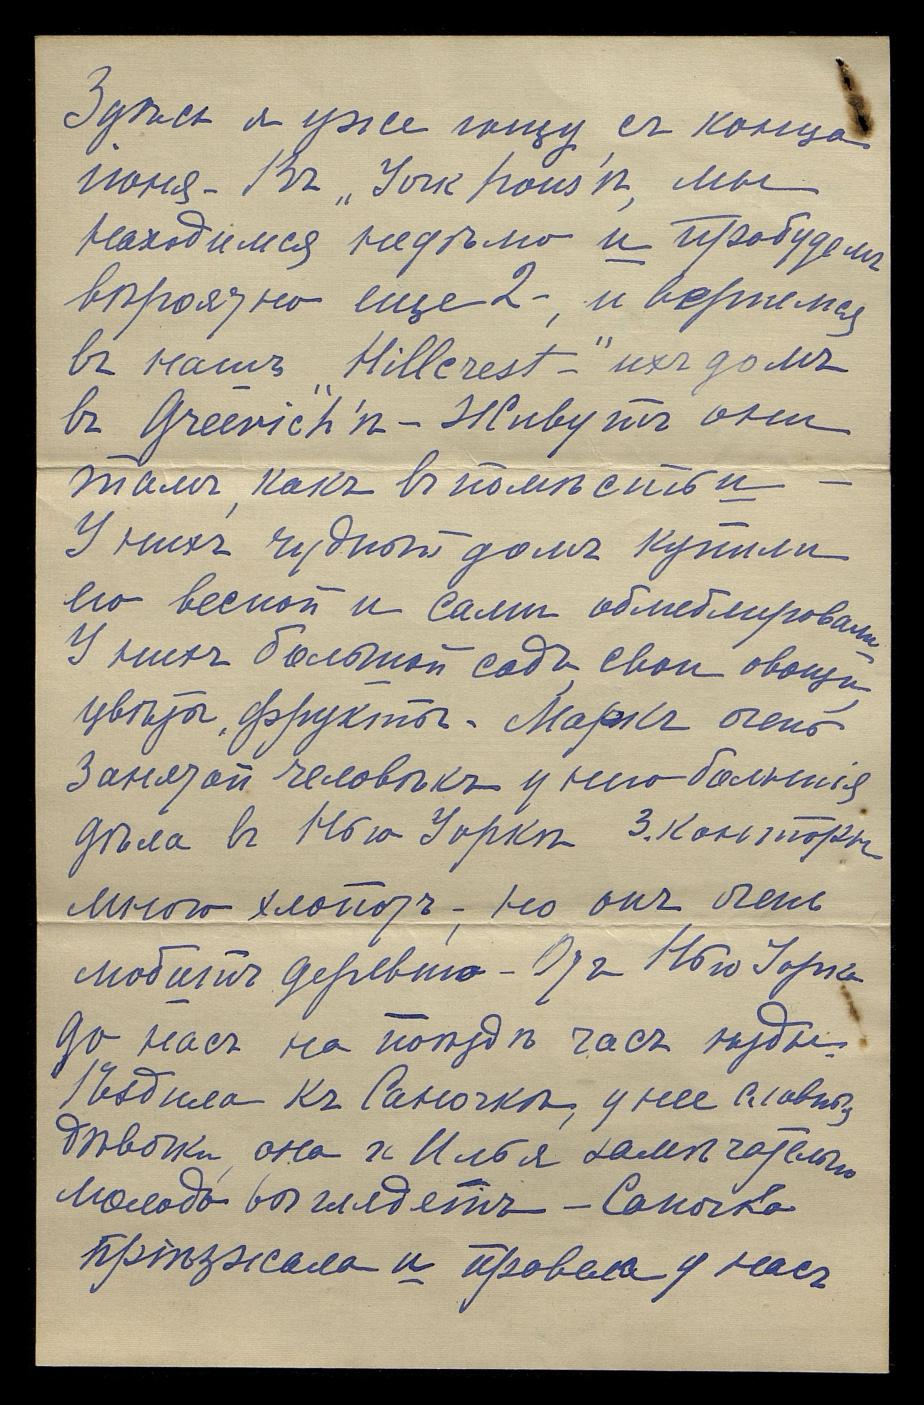 Здѣсь я уже гощу, съ конца
іюня – Въ „York hous'ѣ, мы
находимся недѣлю и пробудемъ
вѣроятно еще 2 –, и вернемся
въ нашъ „Hillcrest –" ихъ домъ
въ Greenich'ѣ – Живутъ они
тамъ, какъ въ помѣстьи –
У нихъ чудный домъ купили
его весной и сами обмеблировали
У нихъ большой садъ, свои овощи,
цвѣты, фрукты – Маркъ очень
занятой человѣкъ у него большія
дѣла въ Нью Іоркѣ 3. конторы
много хлопотъ –, но онъ очень
любитъ деревню – Отъ Нью Іорка
до насъ на поѣздѣ часъ ѣзды –
Ѣздила къ Саночкѣ, у нее славныя
дѣвочки, она и Илья замѣчательно
молодо выглядетъ – Саночка
пріѣзжала и провела у насъ